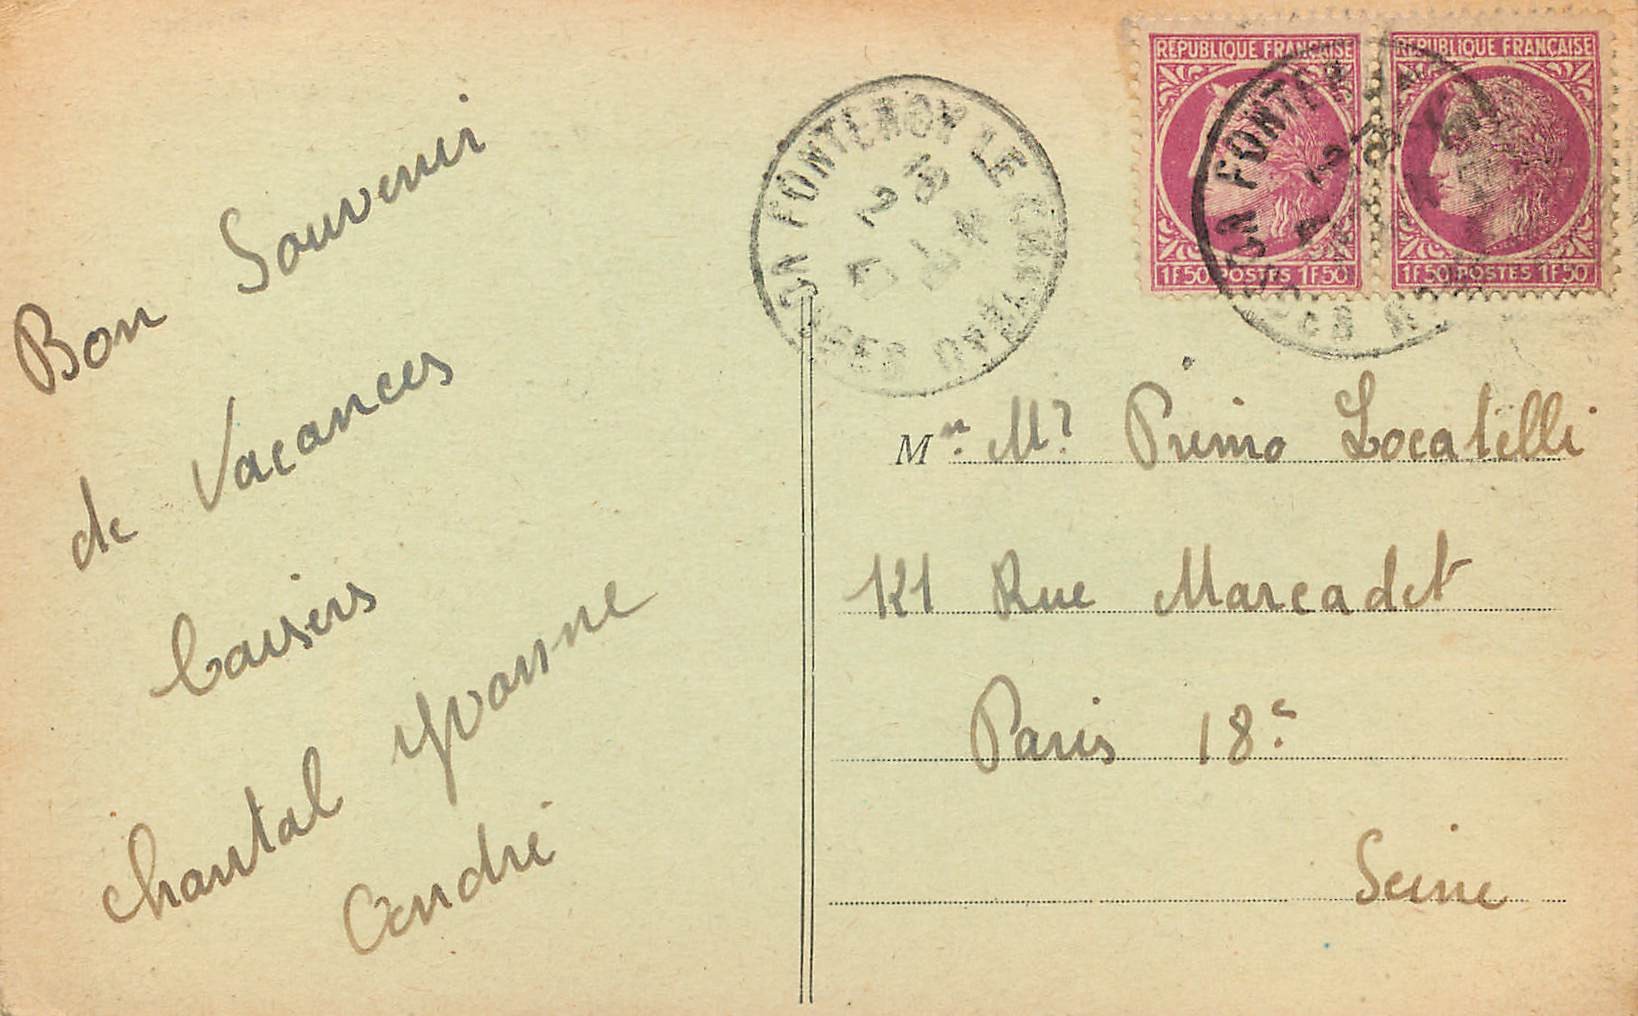 Bon Souvenir
de Vacances
baisers
Chantal Yvonne
André
FONTENOY LE CHATEAU
VOSGES
REPUBLIQUE FRANÇAISE
1F50 POSTES 1F50
REPUBLIQUE FRANÇAISE
1F50 POSTES 1F50
M Mr Primo Locatelli
Rue Marcadet
Paris 18e
Seine